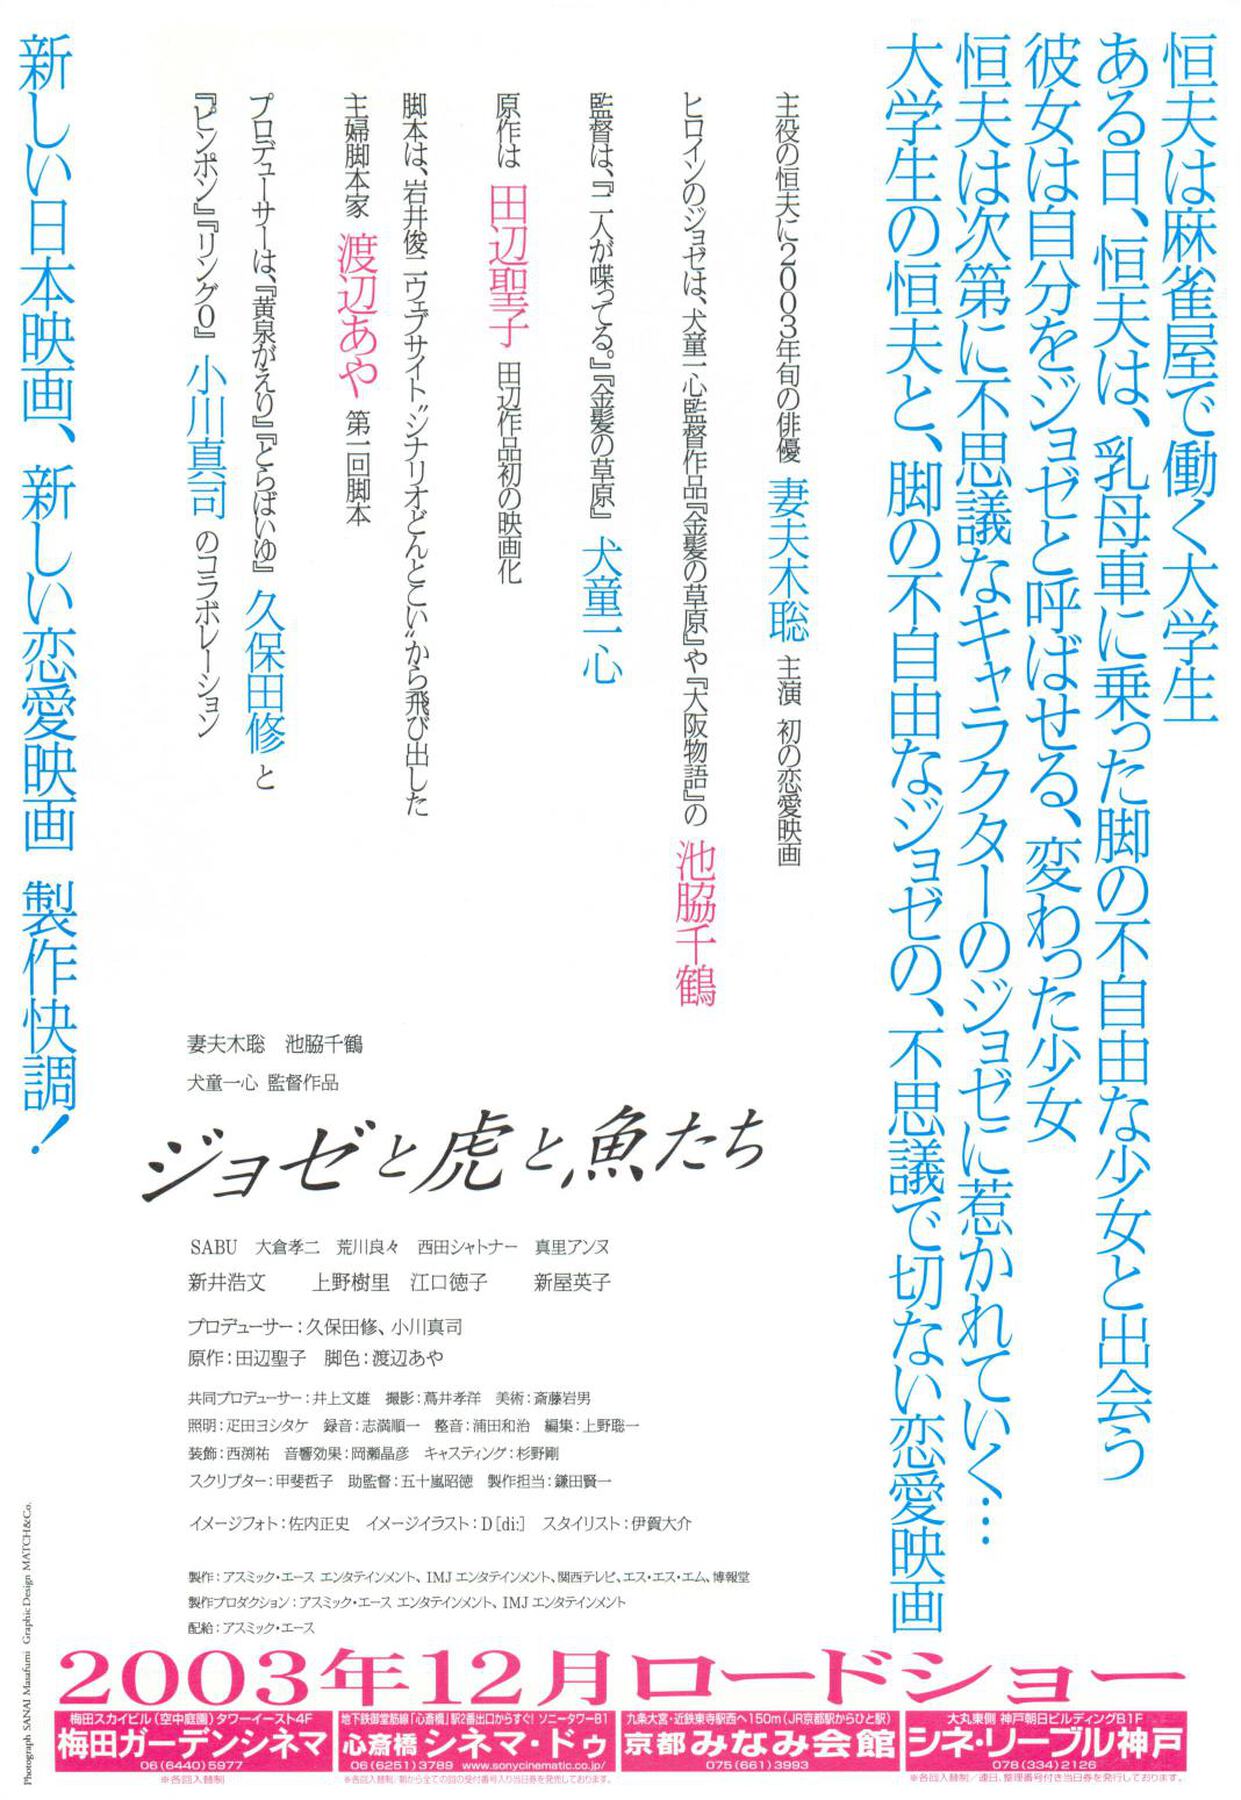 恒夫は麻雀屋で働く大学生
ある日、恒夫は、乳母車に乗った脚の不自由な少女と出会う
彼女は自分をジョゼと呼ばせる、変わった少女
恒夫は次第に不思議なキャラクターのジョゼに惹かれていく…
大学生の恒夫と、脚の不自由なジョゼの、不思議で切ない恋愛映画
主役の恒夫に2003年旬の俳優 妻夫木聡 主演 初の恋愛映画
ヒロインのジョゼは、犬童一心監督作品『金髪の草原』や『大阪物語』の 池脇千鶴
監督は、『二人が喋ってる。』『金髪の草原』 犬童一心
原作は 田辺聖子 田辺作品初の映画化
脚本は、岩井俊二ウェブサイト“シナリオどんとこい”から飛び出した
主婦脚本家 渡辺あや 第一回脚本
プロデューサーは、『黄泉がえり』『とらばいゆ』 久保田修 と
『ピンポン』『リング0』 小川真司 のコラボレーション
新しい日本映画、新しい恋愛映画 製作快調!
妻夫木聡 池脇千鶴
犬童一心 監督作品
ジョゼと虎と魚たち
SABU 大倉孝二 荒川良々 西田シャトナー 真里アンヌ
新井浩文 上野樹里 江口徳子 新屋英子
プロデューサー:久保田修、小川真司
原作:田辺聖子 脚色:渡辺あや
共同プロデューサー:井上文雄 撮影:蔦井孝洋 美術:斎藤岩男
照明:疋田ヨシタケ 録音:志満順一 整音:浦田和治 編集:上野聡一
装飾:西渕祐 音響効果:岡瀬晶彦 キャスティング:杉野剛
スクリプター:甲斐哲子 助監督:五十嵐昭徳 製作担当:鎌田賢一
イメージフォト:佐内正史 イメージイラスト:D[di:] スタイリスト:伊賀大介
製作:アスミック・エース エンタテインメント、IMJエンタテインメント、関西テレビ、エス・エス・エム、博報堂
製作プロダクション:アスミック・エース エンタテインメント、IMJエンタテインメント
配給:アスミック・エース
Photograph SANAI Masafumi Graphic Design MATCH&Co.
2003年12月ロードショー
梅田スカイビル(空中庭園)タワーイースト4F
梅田ガーデンシネマ
06(6440)5977
※各回入替制
地下鉄御堂筋線「心斎橋」駅2番出口からすぐ! ソニータワーB1
心斎橋 シネマ・ドゥ
06(6251)3789 www.sonycinematic.co.jp/
※各回入替制/朝から全ての回の受付番号入り当日券を発売しております。
九条大宮・近鉄東寺駅西へ150m(JR京都駅からひと駅)
京都みなみ会館
075(661)3993
大丸東側 神戸朝日ビルディングB1F
シネ・リーブル神戸
078(334)2126
※各回入替制/連日、整理番号付き当日券を発行しております。